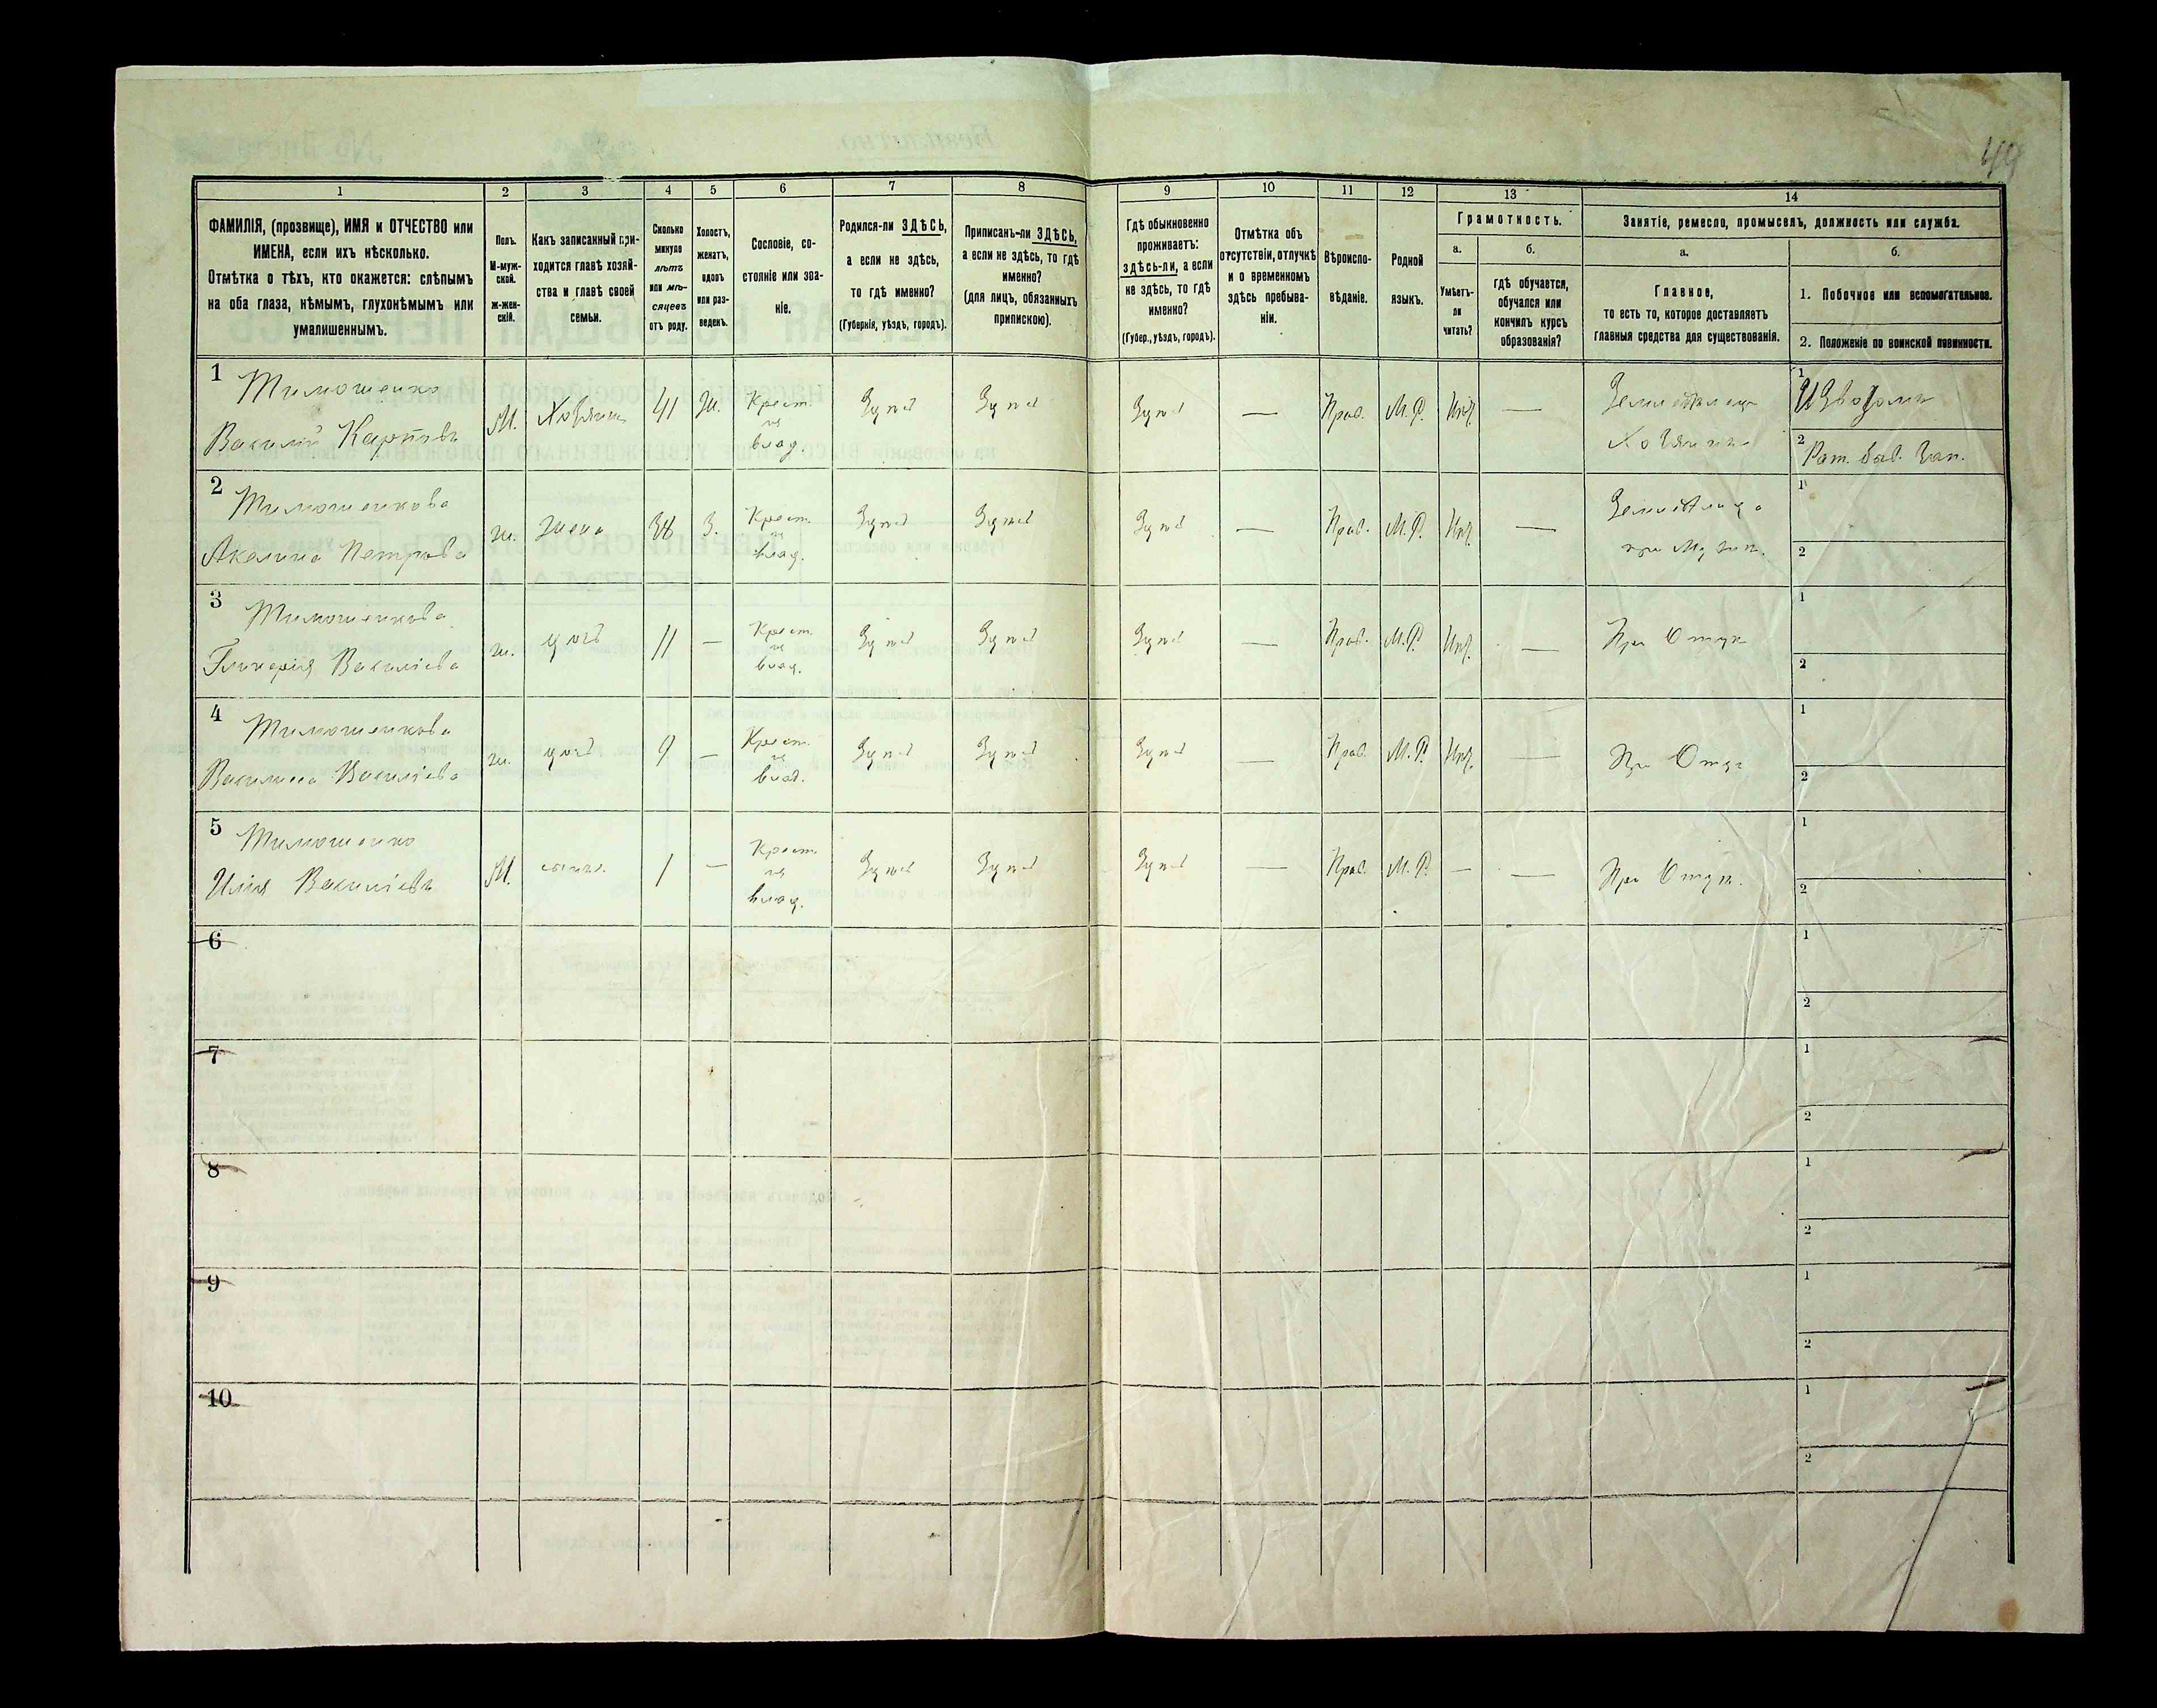 49
1 2 3 4 5 6 7 8 9 10 11 12 13 14
ФАМИЛІЯ, (прозвище), ИМЯ и ОТЧЕСТВО или
ИМЕНА, если ихъ нѣсколько.
Отмѣтка о тѣхъ, кто окажется: слѣпымъ
на оба глаза, нѣмымъ, глухонѣмымъ или
умалишеннымъ.
Полъ.
М-муж-
ской.
ж-жен-
скій.
Какъ записанный при-
ходится главѣ хозяй-
ства и главѣ своей
семьи.
Сколько
минуло
лѣтъ
или мѣ-
сяцевъ
отъ роду.
Холостъ,
женатъ,
вдовъ
или раз-
веденъ.
Сословіе, со-
стояніе или зва-
ніе.
Родился-ли ЗДѢСЬ,
а если не здѣсь,
то гдѣ именно?
(Губернія, уѣздъ, городъ).
Приписанъ-ли ЗДѢСЬ,
а если не здѣсь, то гдѣ
именно?
(для лицъ, обязанныхъ
припискою).
Гдѣ обыкновенно
проживаетъ:
здѣсь-ли, а если
не здѣсь, то гдѣ
именно?
(Губер., уѣздъ, городъ).
Отмѣтка объ
отсутствіи, отлучкѣ
и о временномъ
здѣсь пребыва-
ніи.
Вѣроиспо-
вѣданіе.
Родной
языкъ.
Грамотность.
а.
Умѣетъ-
ли
читать?
б.
гдѣ обучается,
обучался или
кончилъ курсъ
образованія?
Занятіе, ремесло, промыселъ, должность или служба.
а.
Главное,
то есть то, которое доставляетъ
главныя средства для существованія.
б.
1. Побочное или вспомогательное.
2. Положеніе по воинской повинности.
1 Тимошенко
Василій Карповъ
М. Хозяинъ 41 Ж. Крест. влад. Здѣсь Здѣсь Здѣсь — Прав. М.Р. Нѣт. —
Земледѣлецъ
Хозяинъ
1 Извозомъ
2 Рат. Зап.
2 Тимошенкова
Акелина Петрова
ж. Жена 38 З. Крест. влад. Здѣсь Здѣсь Здѣсь — Прав. М.Р. Нѣт. —
Земледѣлица
при Муж.
1
2
3 Тимошенкова
Гликерія Василіева
ж. дочь 11 — Крест. влад. Здѣсь Здѣсь Здѣсь — Прав. М.Р. Нѣт. —
При Отцѣ
1
2
4 Тимошенкова
Василиса Василіева
ж. дочь 9 — Крест. влад. Здѣсь Здѣсь Здѣсь — Прав. М.Р. Нѣт. —
При Отцѣ
1
2
5 Тимошенко
Илія Василіевъ
М. сынъ 1 — Крест. влад. Здѣсь Здѣсь Здѣсь — Прав. М.Р. — —
При Отцѣ
1
2
6
1
2
7
1
2
8
1
2
9
1
2
10
1
2